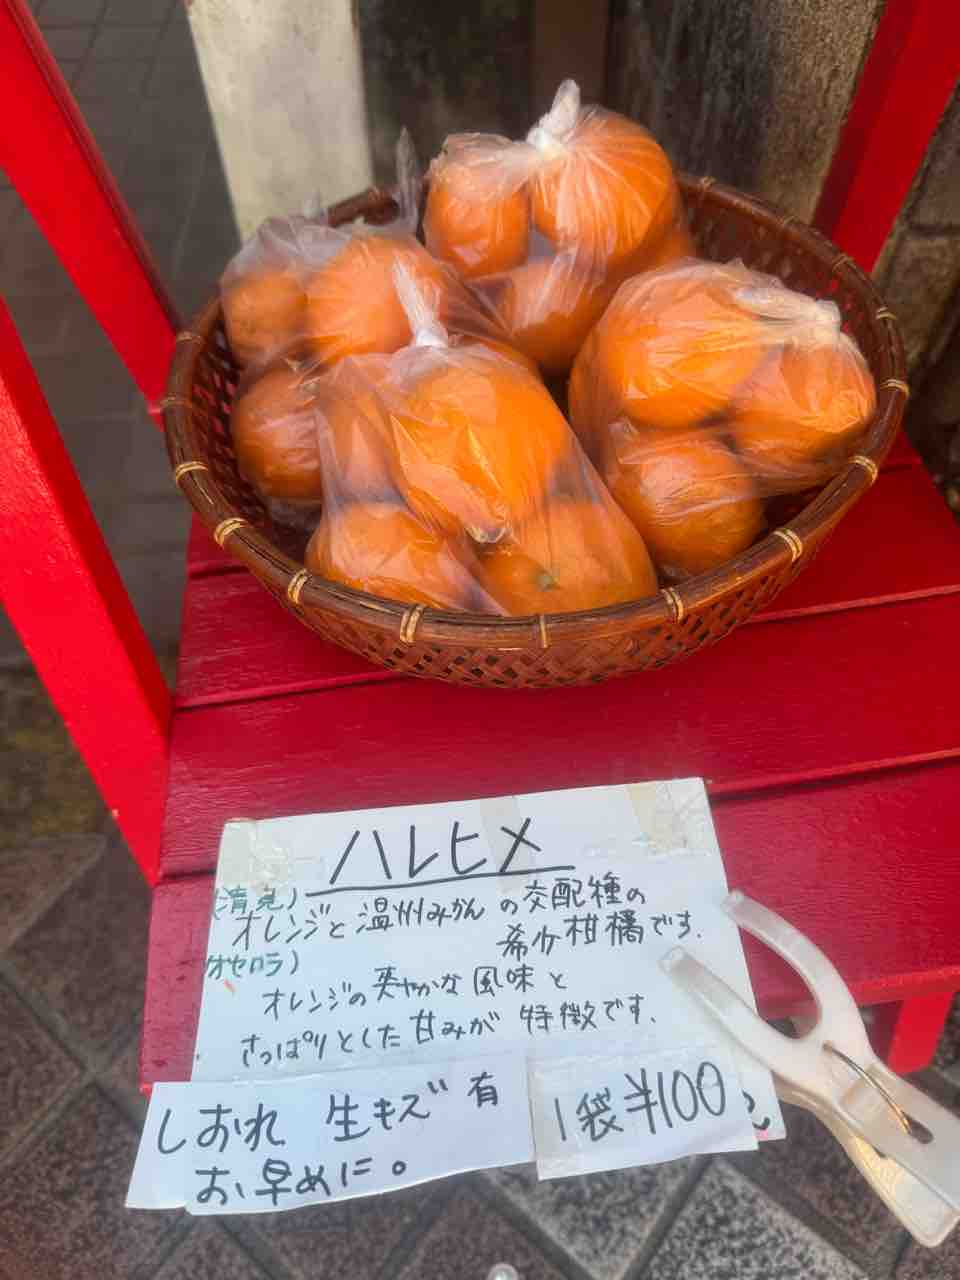 ハレヒメ
(清見)
オレンジと温州みかんの交配種の
希少柑橘です.
(オセロラ)
オレンジの爽やかな風味と
さっぱりとした甘みが特徴です.
しおれ 生キズ 有
お早めに。
1袋¥100